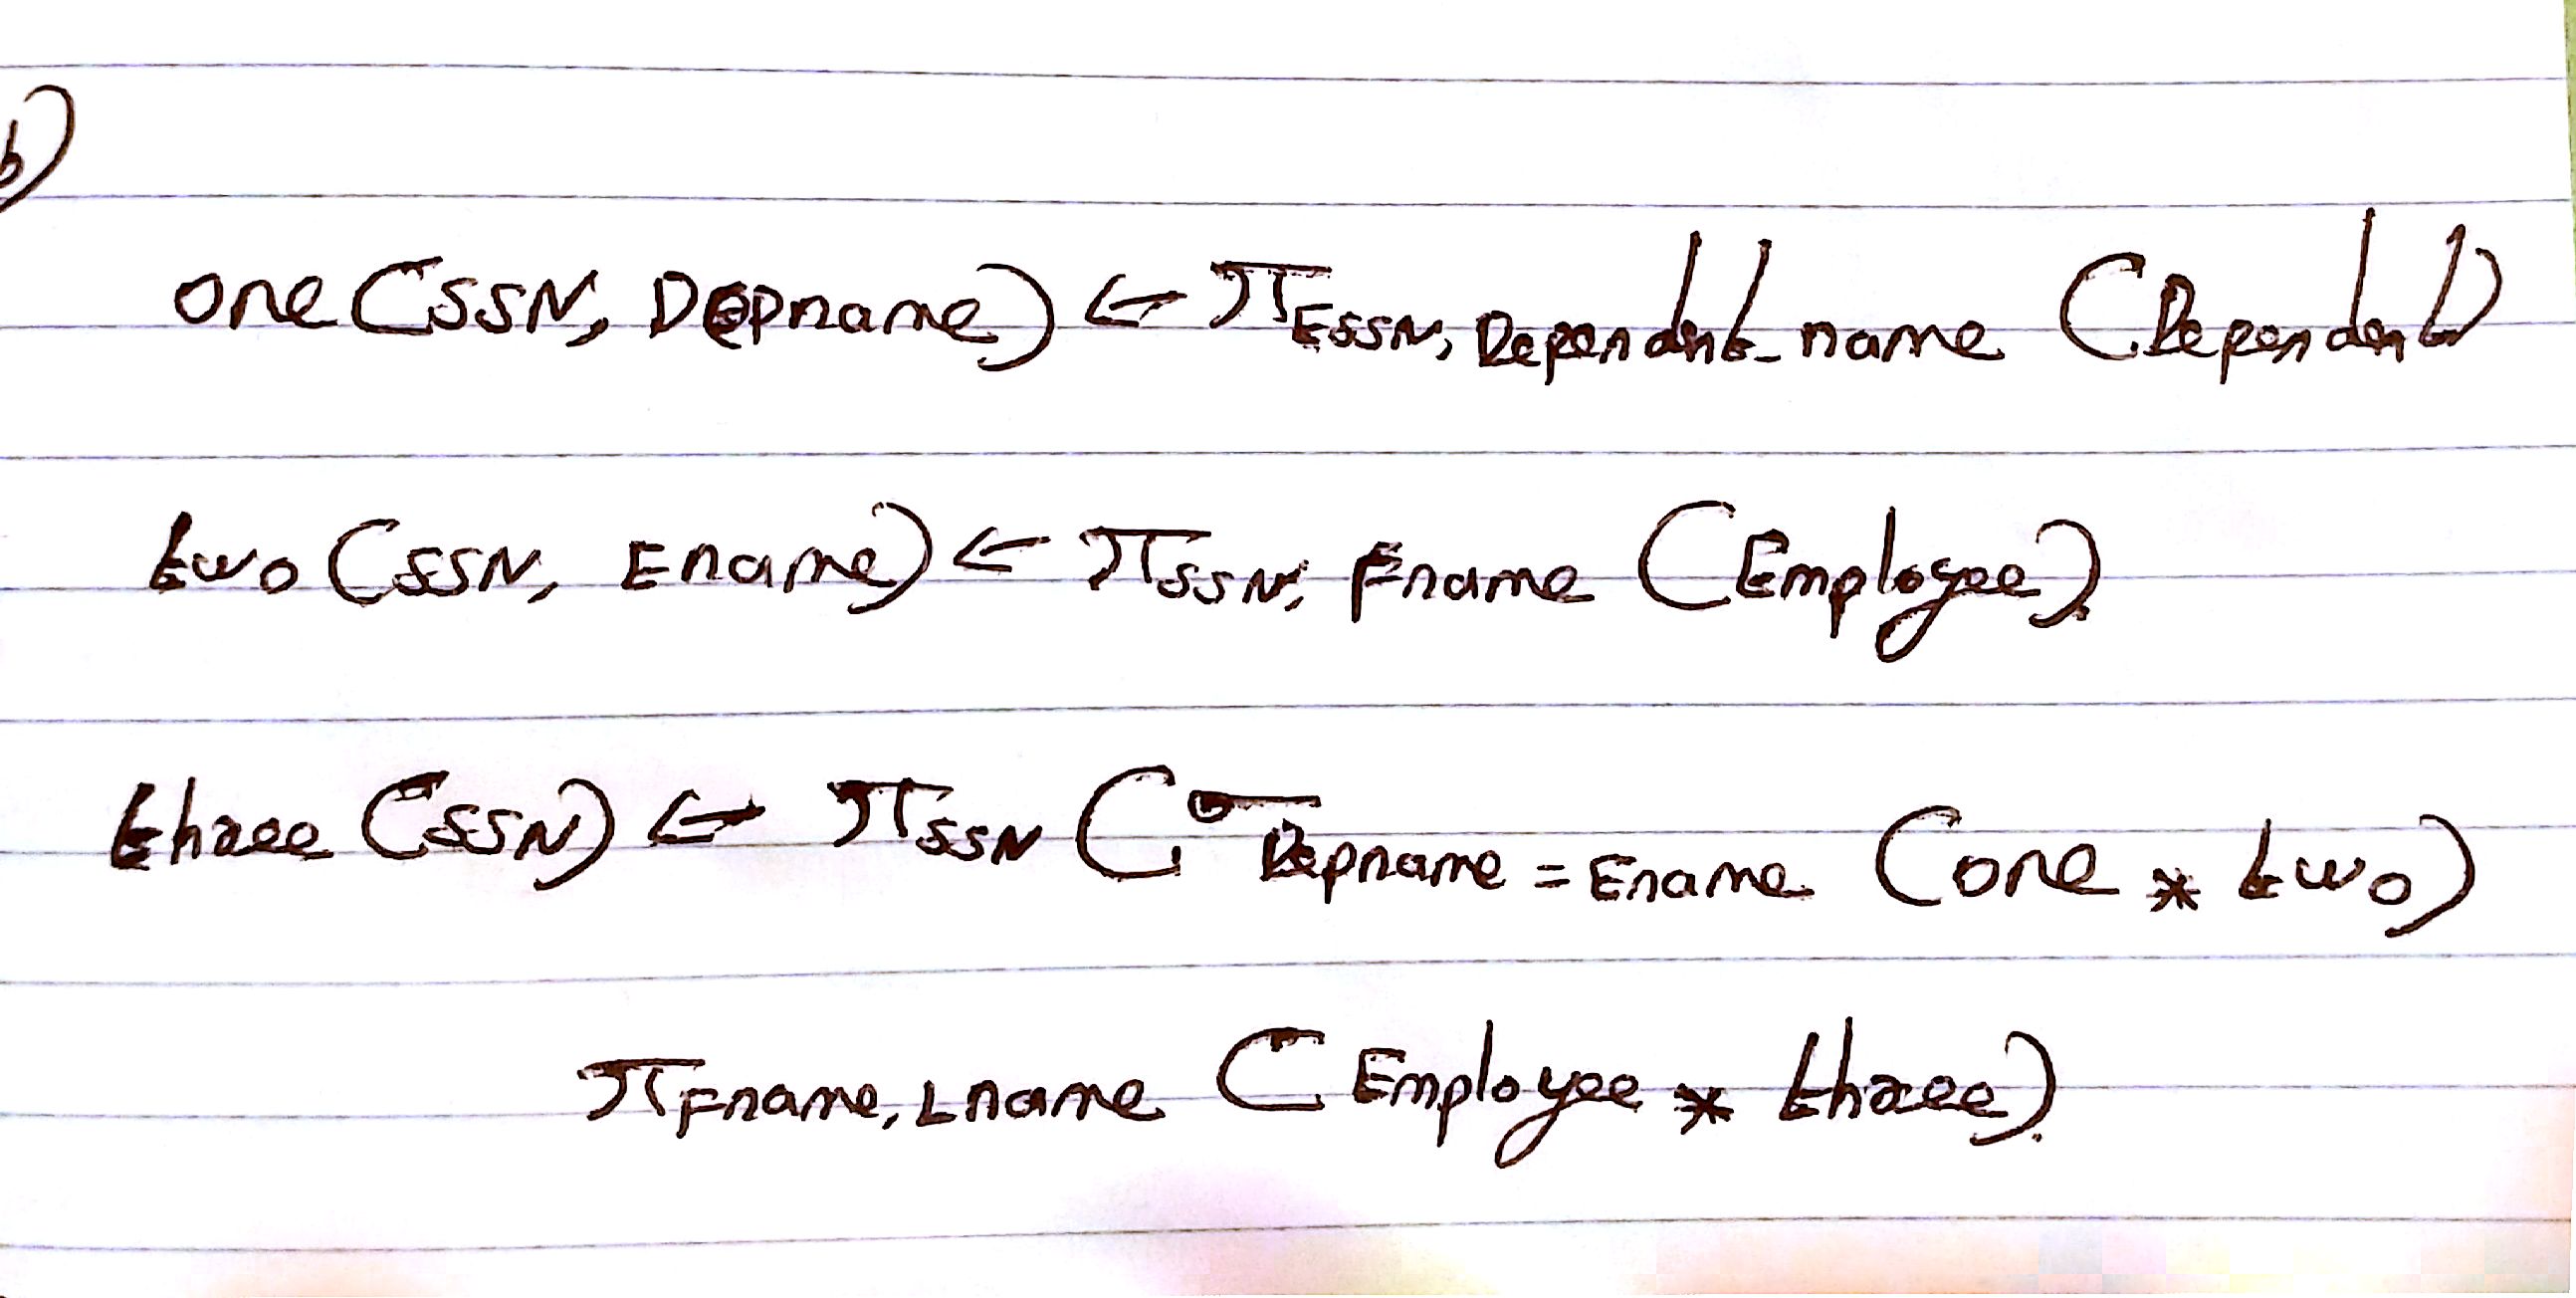 b)
one (SSN, Depname) ← π ESSN, Dependent_name (Dependent)
two (SSN, Ename) ← π SSN, Fname (Employee).
three (SSN) ← π SSN (σ Depname = Ename (one * two)
π Fname, Lname (Employee * three).